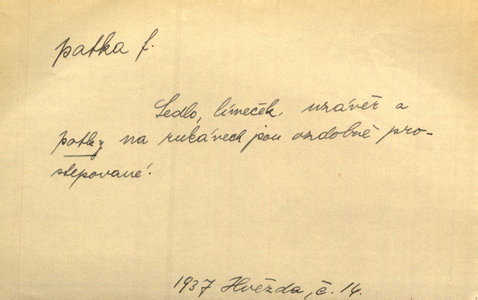 patka f.
Sedlo, límeček, uzávěr a
patky na rukávech jsou ozdobně pro-
stepované.
1937 Hvězda, č. 14.